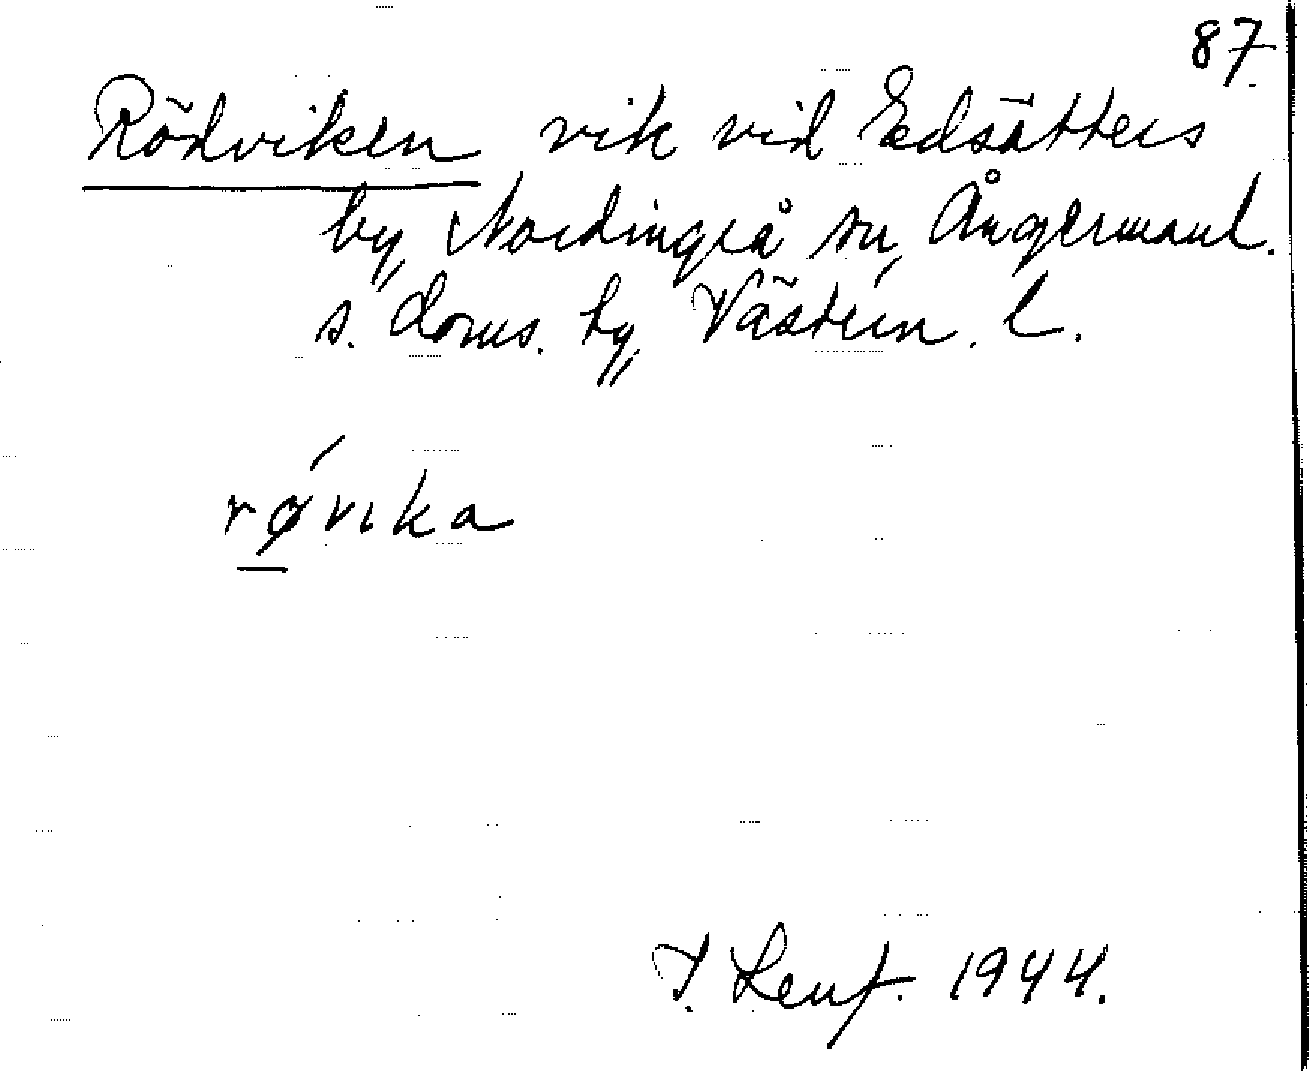 87.
Rödviken vik vid Edsätters
by, Nordingrå sn, Ångermanl.
s. doms. hg, Västern. l.
røvika
J. Leuf. 1944.